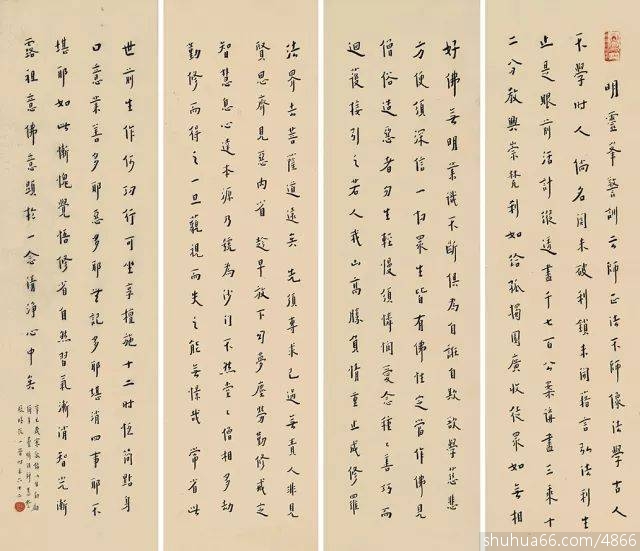 明靈峯警訓云師正法不師像法學古人
不學時人倘名關未破利鎖未開藉言弘法利生
止是眼前活計縱透盡千七百公案講盡三乘十
二分教興崇梵刹如給孤獨園廣收徒眾如無相
好佛無明業識不斷俱為自誑自欺欲學慈悲
方便須深信一切眾生皆有佛性定當作佛見
僧俗造惡者勿生輕慢須憐憫愛念種〻善巧而
迴護接引之若人我山高勝負情重止成修羅
法界去菩薩道遠矣先須專求己過毋責人非見
賢思齊見惡內省趁早放下夢塵勞勤修戒定
智慧息心達本源乃號為沙門不然堂〻僧相多劫
勤修而得之一旦藐視而失之能無惜哉常省此
世前生作何功行可坐享檀施十二時簡點身
口意業善多耶惡多耶無記多耶堪消四事耶不
堪耶如此慚愧覺悟修省自然習氣漸消智光漸
露祖意佛意顯於一念清淨心中矣
shuhua66.com/4866